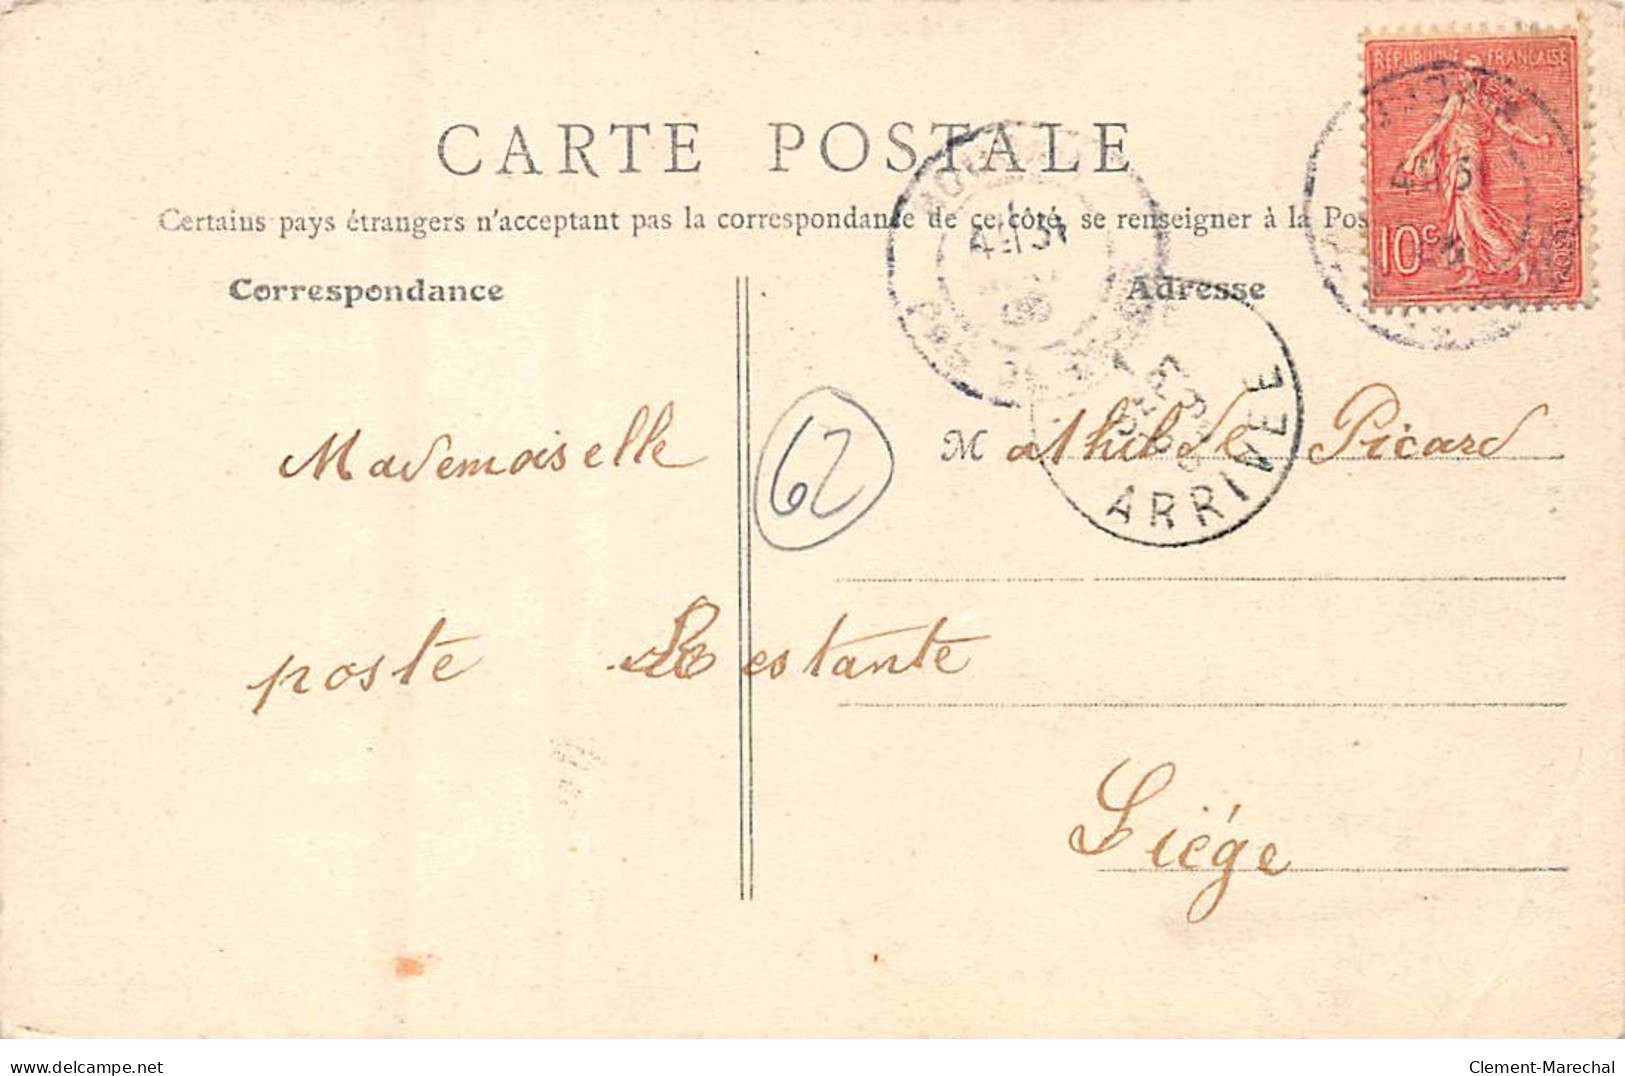 RÉPUBLIQUE FRANÇAISE
10c
CARTE POSTALE
Certains pays étrangers n'acceptant pas la correspondance de ce côté, se renseigner à la Pos
Correspondance
Adresse
ARRIVEE
Mademoiselle
Mathilde Picard
62
poste Restante
Liége
delcampe.net
Clement-Marechal